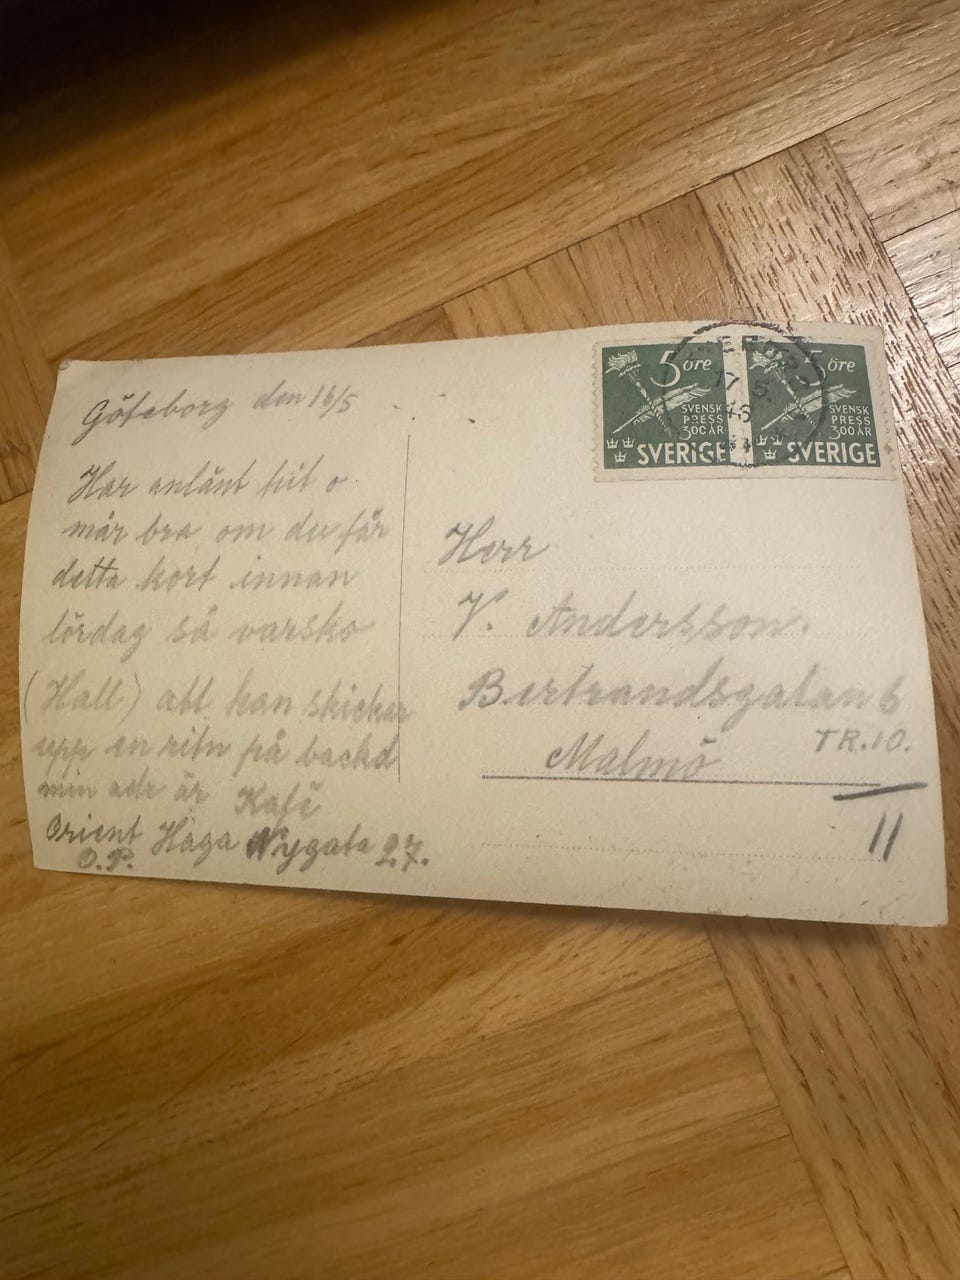 Göteborg den 16/5
Har anlänt hit o
mår bra om du får
detta kort innan
lördag så varsko
(Hall) att han skickar
upp en ritn på backd
min adr är Kafé
Orient Haga Nygata 27.
O.P.
5 öre
SVENSK
PRESS
300 ÅR
SVERIGE
5 öre
SVENSK
PRESS
300 ÅR
SVERIGE
17 5.
45
Herr
V. Andersson.
Bertrandsgatan 6
TR.10.
Malmö
11